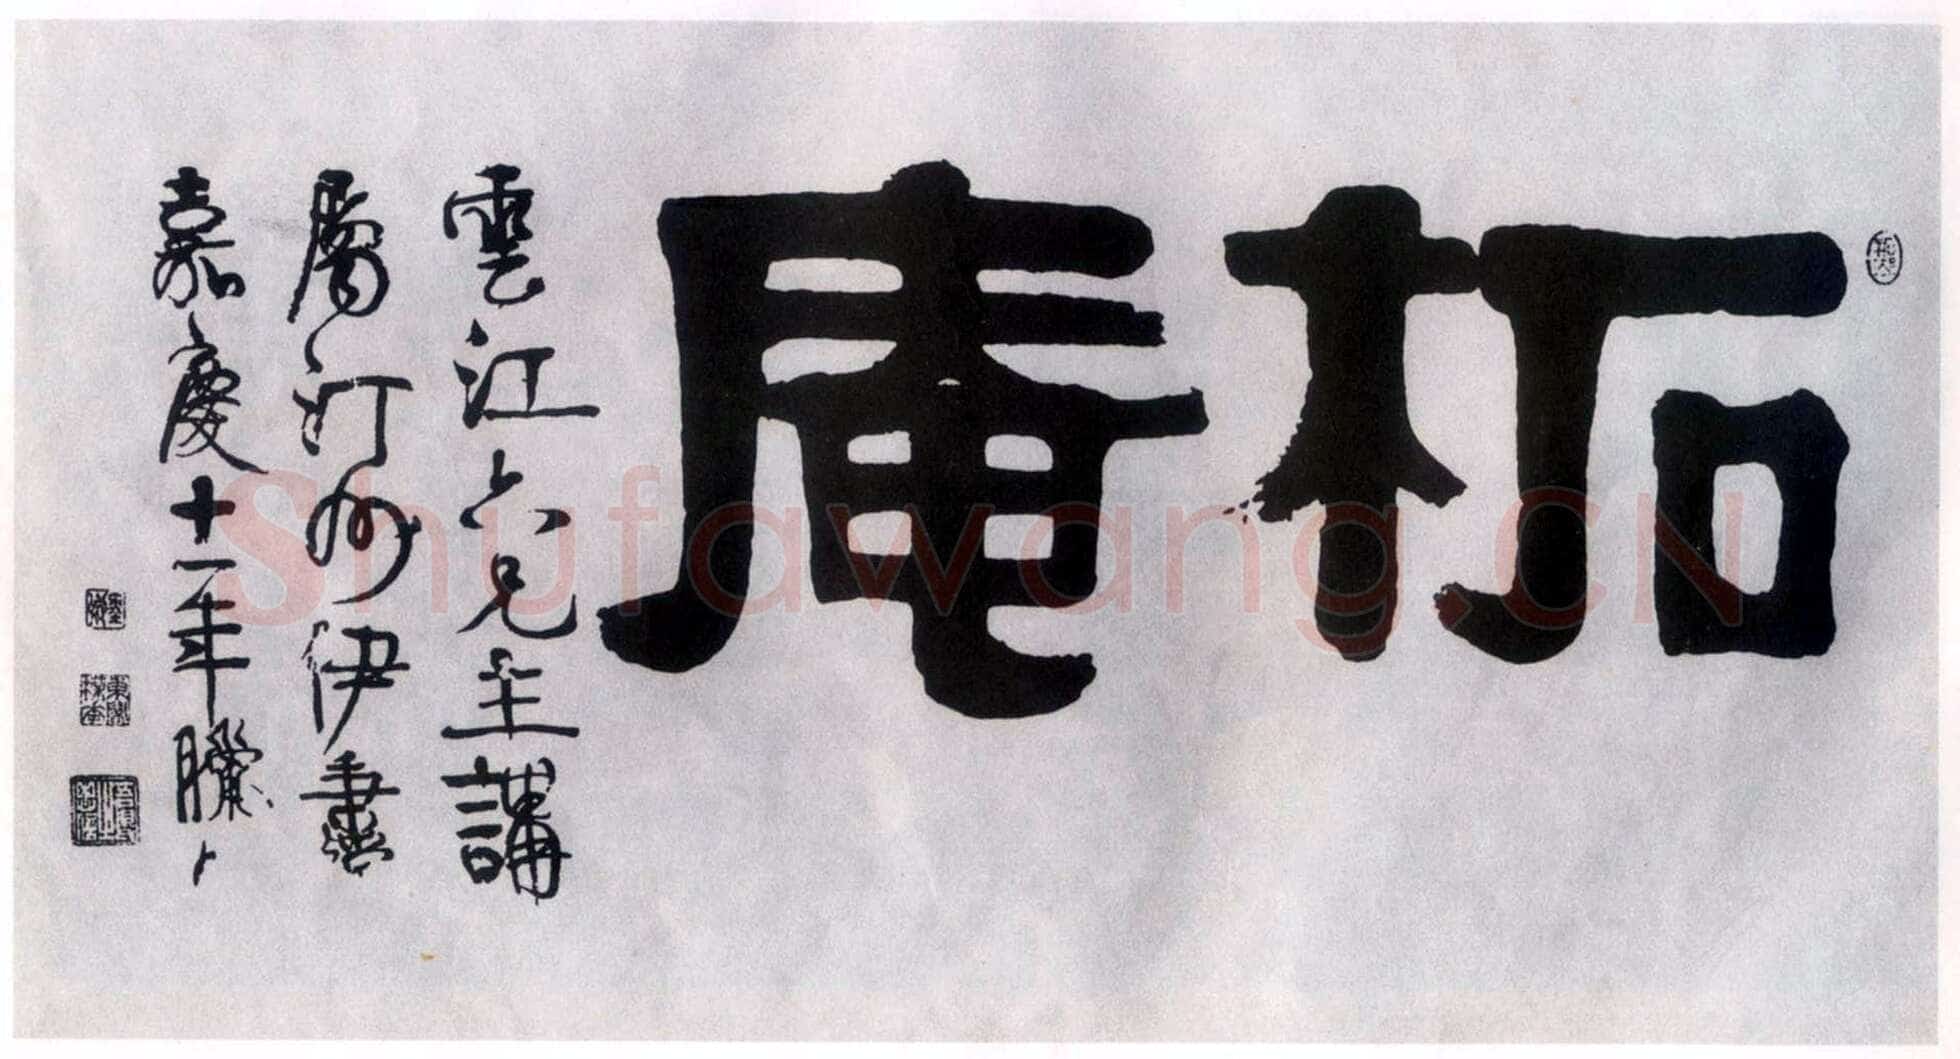 柘庵
雲江六兄主講
屬汀州伊
嘉慶十一年臘
Shufawang.CN